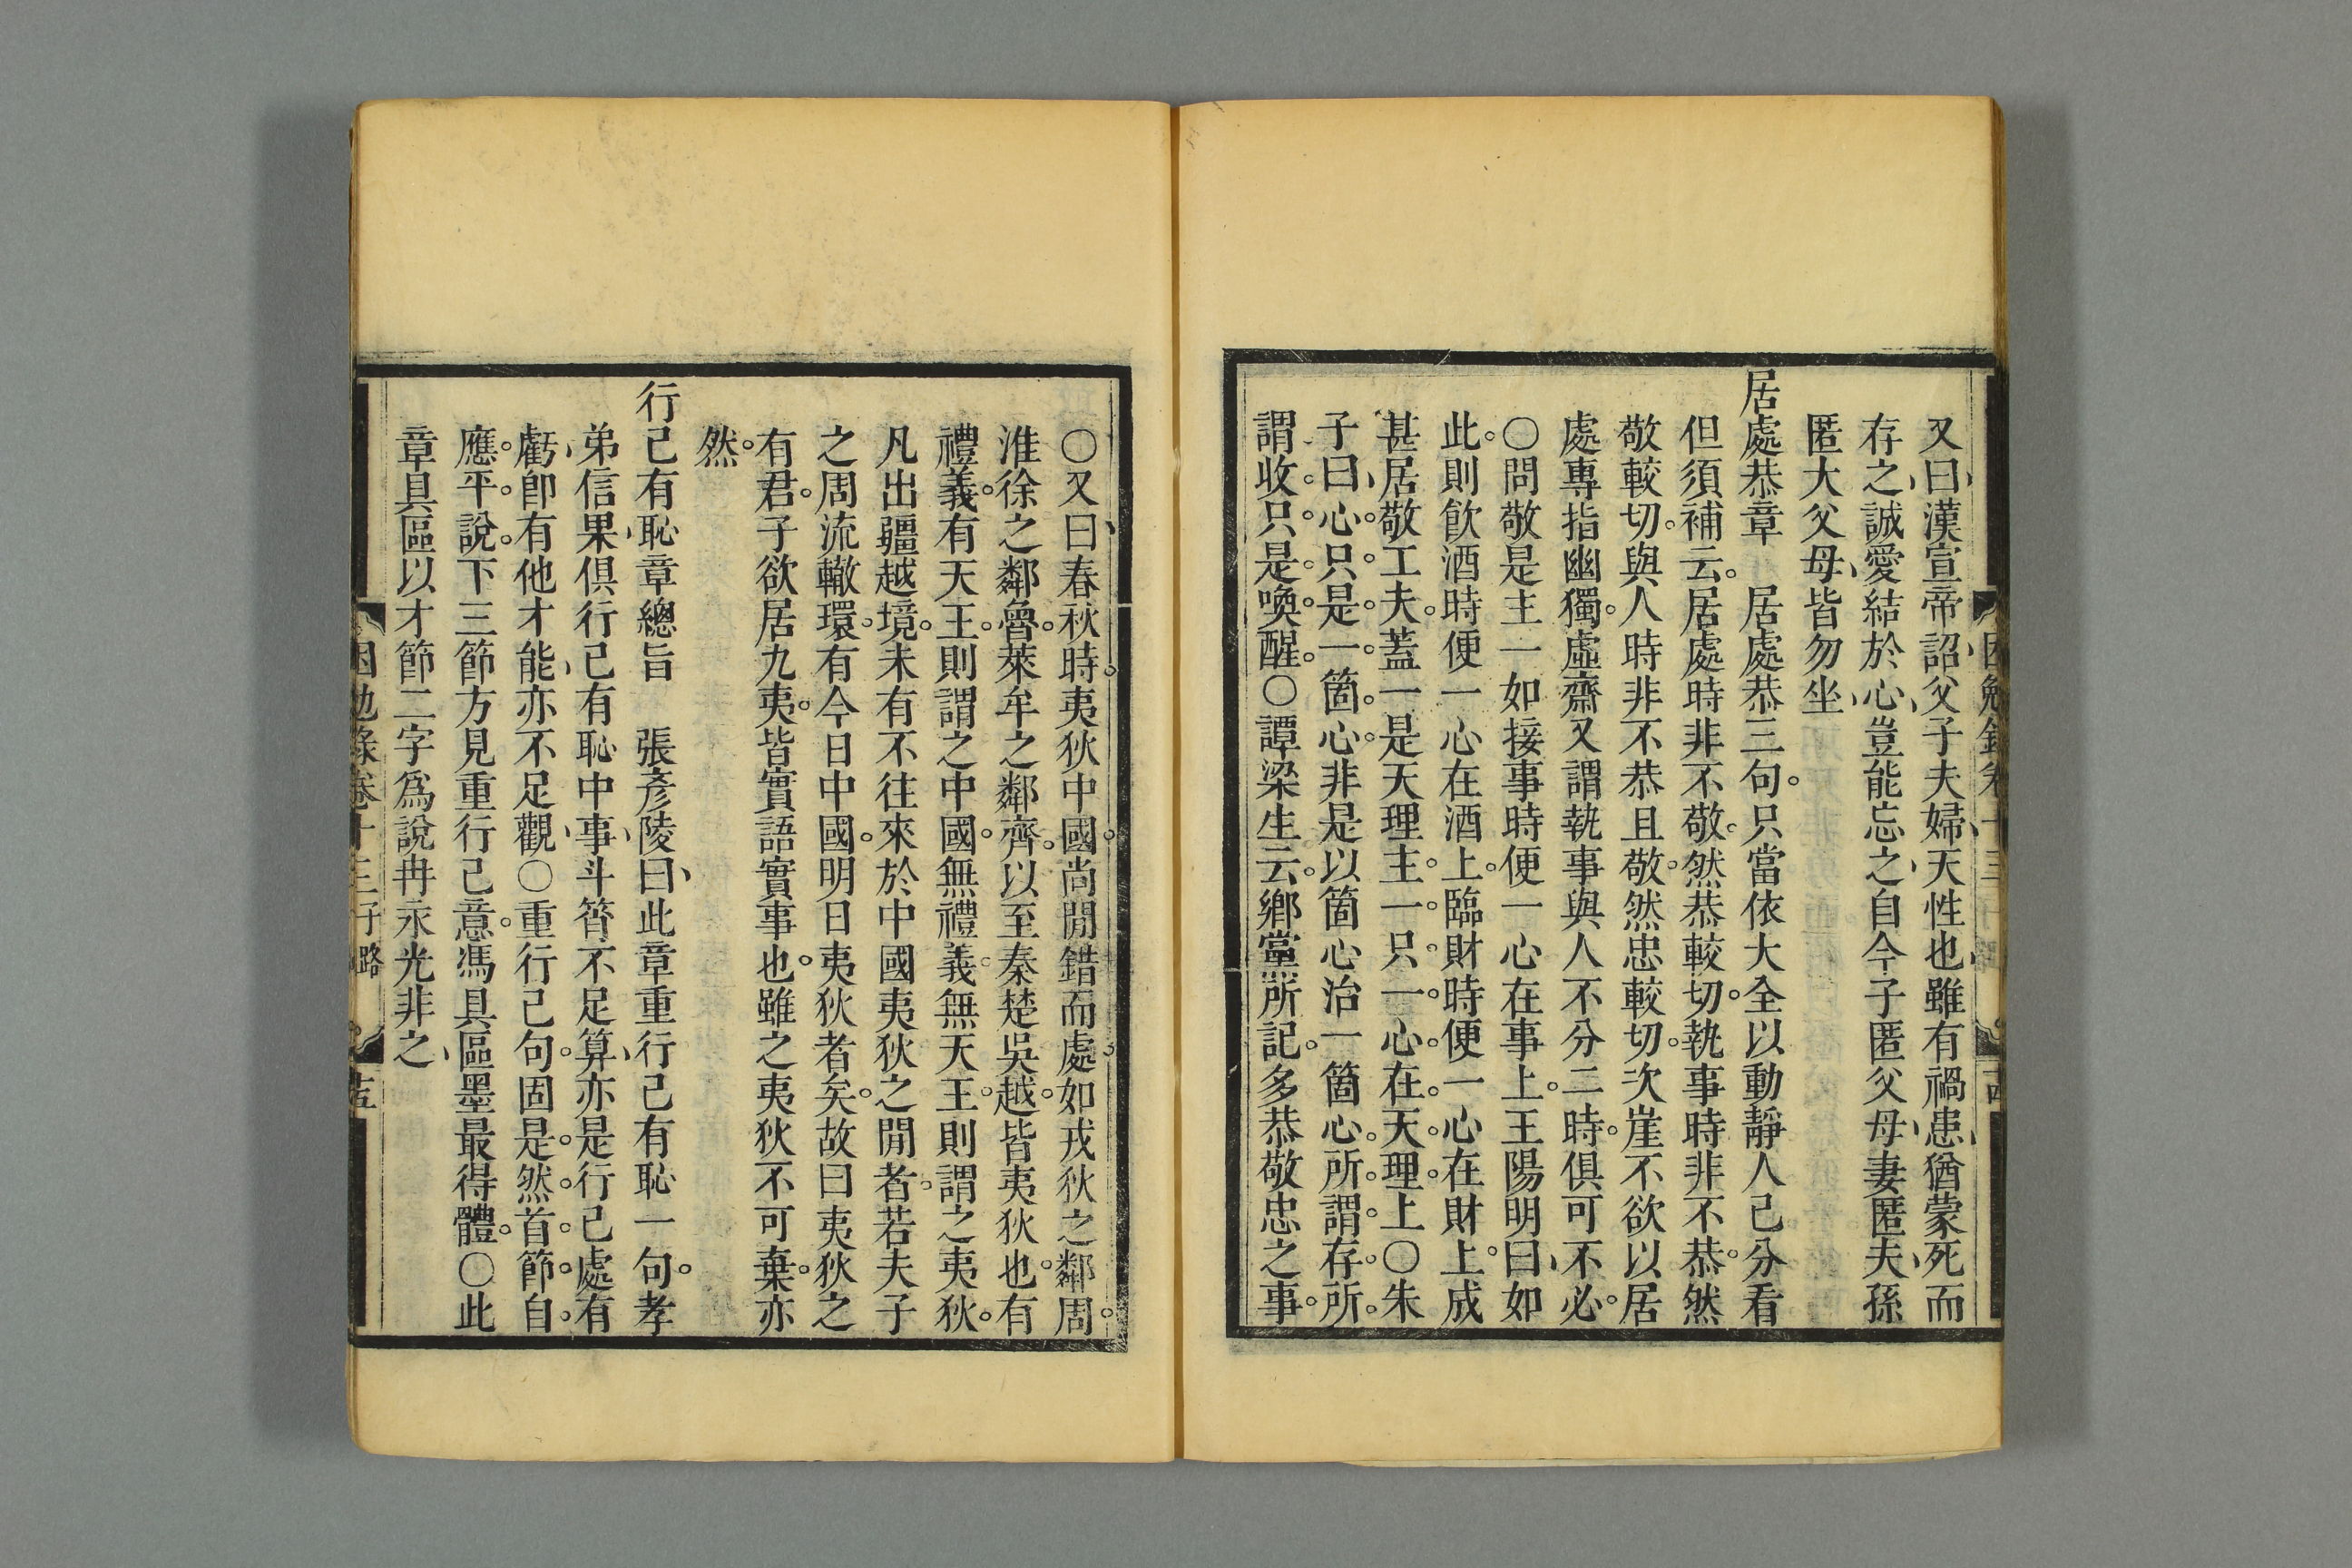 又曰漢宣帝詔父子夫婦天性也雖有禍患猶蒙死而
存之誠愛結於心豈能忘之自今子匿父母妻匿夫孫
匿大父母皆勿坐
居處恭章　居處恭三句只當依大全以動靜人己分看
但須補云居處時非不敬然恭較切執事時非不恭然
敬較切與人時非不恭且敬然忠較切次崖不欲以居
處專指幽獨虛齋又謂執事與人不分二時俱可不必
○問敬是主一如接事時便一心在事上王陽明曰如
此則飲酒時便一心在酒上臨財時便一心在財上成
甚居敬工夫蓋一是天理主一只一心在天理上○朱
子曰心只是一箇心非是以箇心治一箇心所謂存所
謂收只是喚醒○譚梁生云鄉黨所記多恭敬忠之事
○又曰春秋時夷狄中國尚閒錯而處如戎狄之鄰周
淮徐之鄰魯萊牟之鄰齊以至秦楚吳越皆夷狄也有
禮義有天王則謂之中國無禮義無天王則謂之夷狄
凡出疆越境未有不往來於中國夷狄之閒者若夫子
之周流轍環有今日中國明日夷狄者矣故曰夷狄之
有君子欲居九夷皆實語實事也雖之夷狄不可棄亦
然
行己有恥章總旨　張彥陵曰此章重行己有恥一句孝
弟信果俱行己有恥中事斗筲不足算亦是行己處有
虧卽有他才能亦不足觀○重行己句固是然首節自
應平說下三節方見重行己意馮具區墨最得體○此
章具區以才節二字爲說冉永光非之
困勉錄卷十三子路
十五